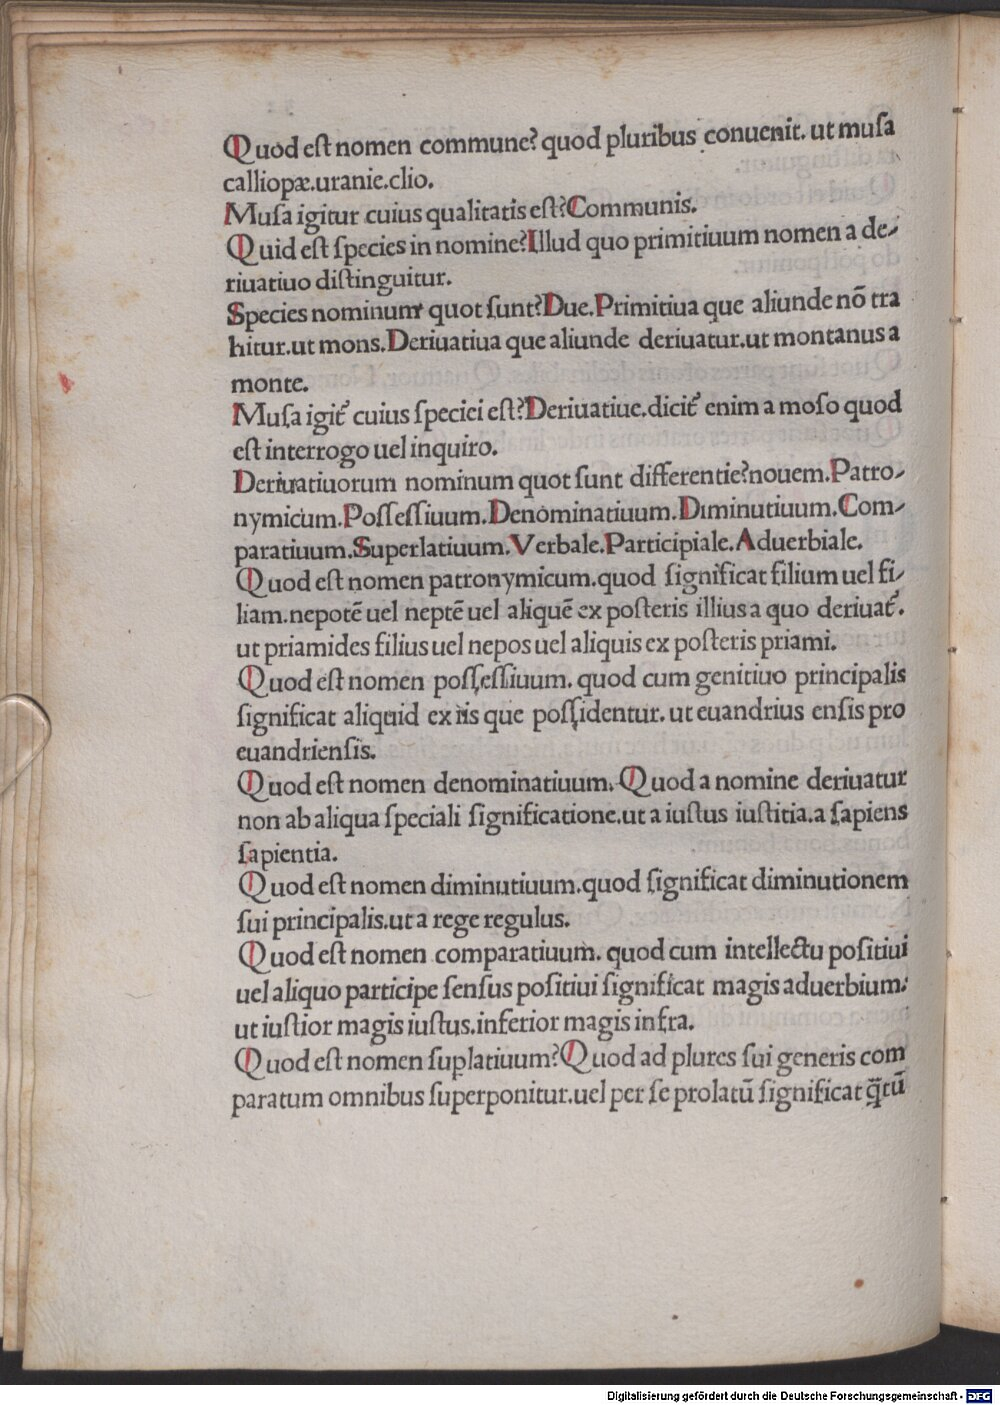 Quod eſt nomen commune? quod pluribus conuenit. ut muſa
calliopæ.uranie.clio.
Muſa igitur cuius qualitatis eſt?Communis.
Quid eſt ſpecies in nomine?Illud quo primitiuum nomen a de-
riuatiuo diſtinguitur.
Species nominum quot ſunt?Due.Primitiua que aliunde nō tra
hitur.ut mons.Deriuatiua que aliunde deriuatur.ut montanus a
monte.
Muſa igit᷑ cuius ſpeciei eſt?Deriuatiue.dicit᷑ enim a moſo quod
eſt interrogo uel inquiro.
Deriuatiuorum nominum quot ſunt differentie?nouem.Patro-
nymicum.Poſſeſſiuum.Denominatiuum.Diminutiuum.Com-
paratiuum.Superlatiuum.Verbale.Participiale.Aduerbiale.
Quod eſt nomen patronymicum.quod ſignificat filium uel fi-
liam.nepotē uel neptē uel aliquē ex poſteris illius a quo deriuat᷑.
ut priamides filius uel nepos uel aliquis ex poſteris priami.
Quod eſt nomen poſſeſſiuum. quod cum genitiuo principalis
ſignificat aliquid ex iis que poſſidentur. ut euandrius enſis pro
euandrienſis.
Quod eſt nomen denominatiuum. Quod a nomine deriuatur
non ab aliqua ſpeciali ſignificatione.ut a iuſtus iuſtitia.a ſapiens
ſapientia.
Quod eſt nomen diminutiuum.quod ſignificat diminutionem
ſui principalis.ut a rege regulus.
Quod eſt nomen comparatiuum. quod cum intellectu poſitiui
uel aliquo participe ſenſus poſitiui ſignificat magis aduerbium:
ut iuſtior magis iuſtus.inferior magis infra.
Quod eſt nomen suꝑlatiuum?Quod ad plures ſui generis com
paratum omnibus ſuperponitur.uel per ſe prolatū ſignificat q̄tū
Digitalisierung gefördert durch die Deutsche Forschungsgemeinschaft - DFG